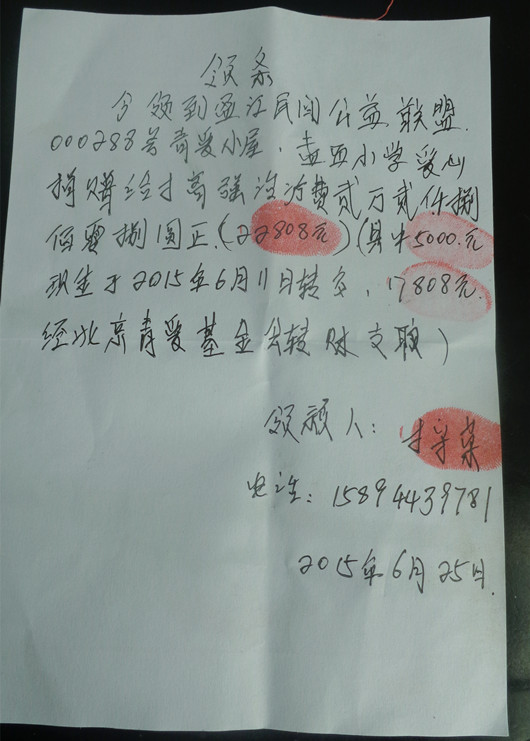 领条
今领到盈江民间公益联盟
000288号青爱小屋,盏西小学爱心
捐赠给寸高强治疗费贰万贰仟捌
佰零捌圆正(22808元)(其中5000.元
现金于2015年6月11日转交,17808元.
经北京青爱基金会转账支取)
领款人:寸守荣
电话:15894439781
2015年6月25日.